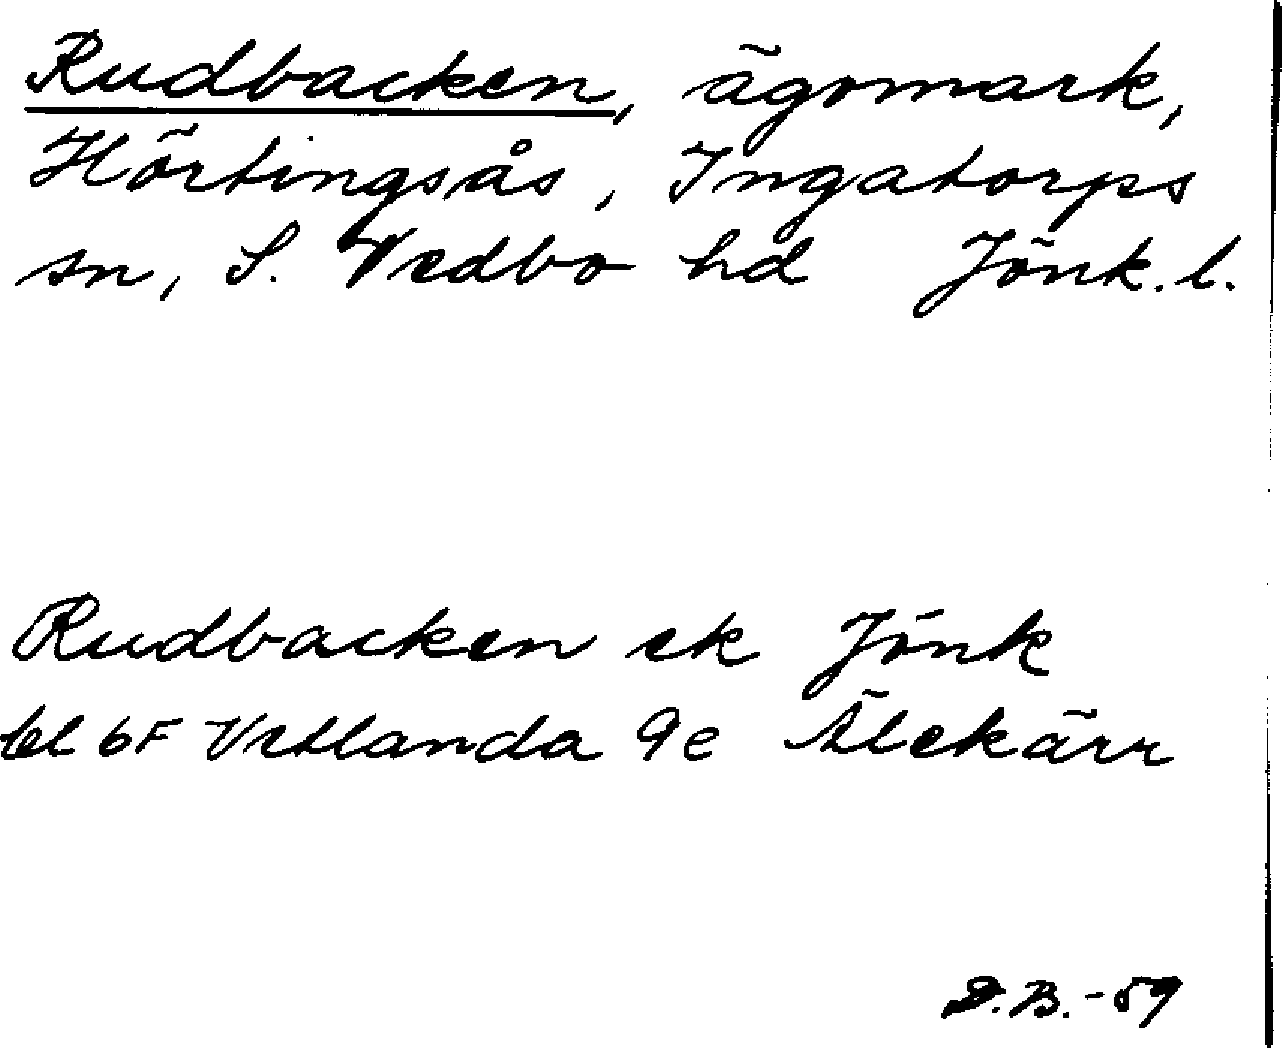 Rudbacken, ägomark,
Hörtingsås, Ingatorps
sn, S. Vedbo hd Jönk. l.
Rudbacken ek Jönk
bl 6F Vetlanda 9e Älekärr
D.B.-59